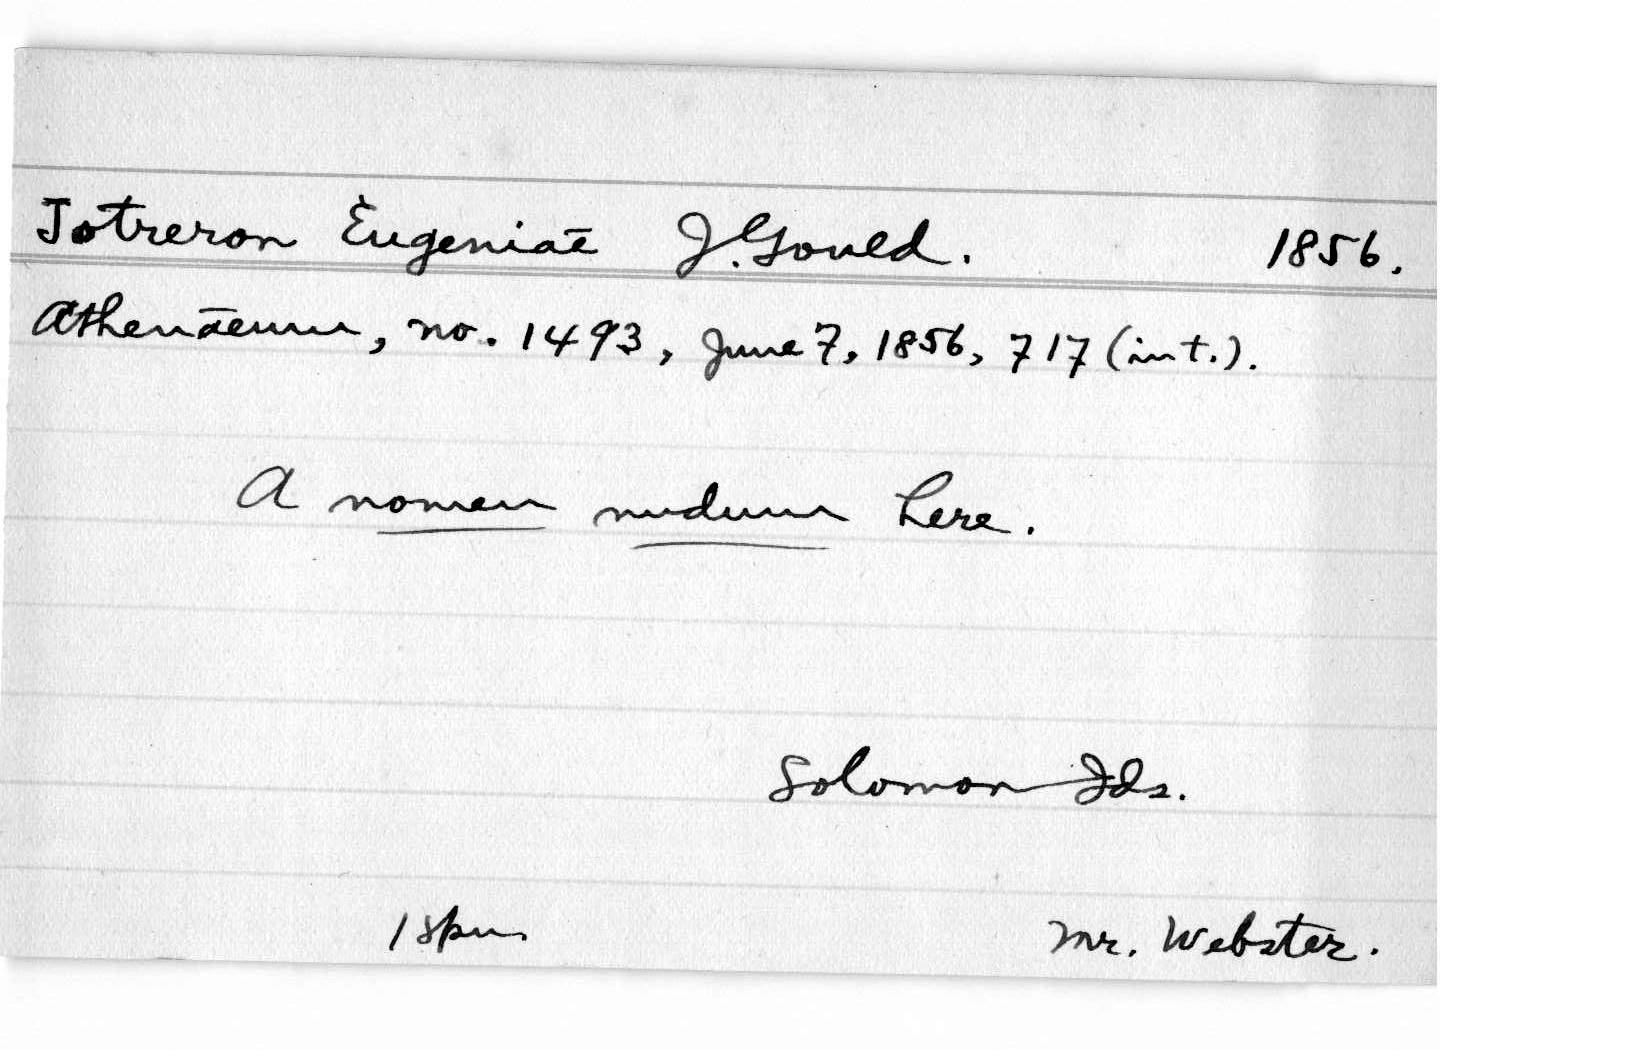 Jotreron Eugeniae J. Gould. 1856.
Athenaeum, no. 1493, June 7, 1856, 717 (int.).
A nomen nudum here.
Solomon Ids.
1 spm. Mr. Webster.